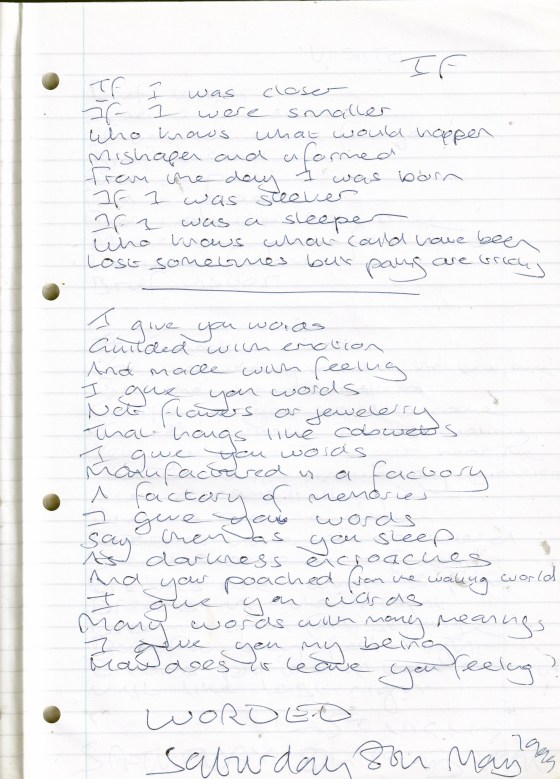 IF
If I was closer
If I were smaller
who knows what would happen
Mishapen and uformed
From the day I was born
If I was sleeker
If I was a sleeper
Who knows what could have been
Lost sometimes but paths are tricky
I give you words
Guilded with emotion
And made with feeling
I give you words
Not flowers or jewelerry
That hangs like cobwebs
I give you words
Manufactured in a factory
A factory of memories
I give you words
Say them as you sleep
As darkness encroaches
And your poached from the waking world
I give you words
Many words with many meanings
I give you my being
How does it leave you feeling?
WORDED
Saturday 8th May 1999